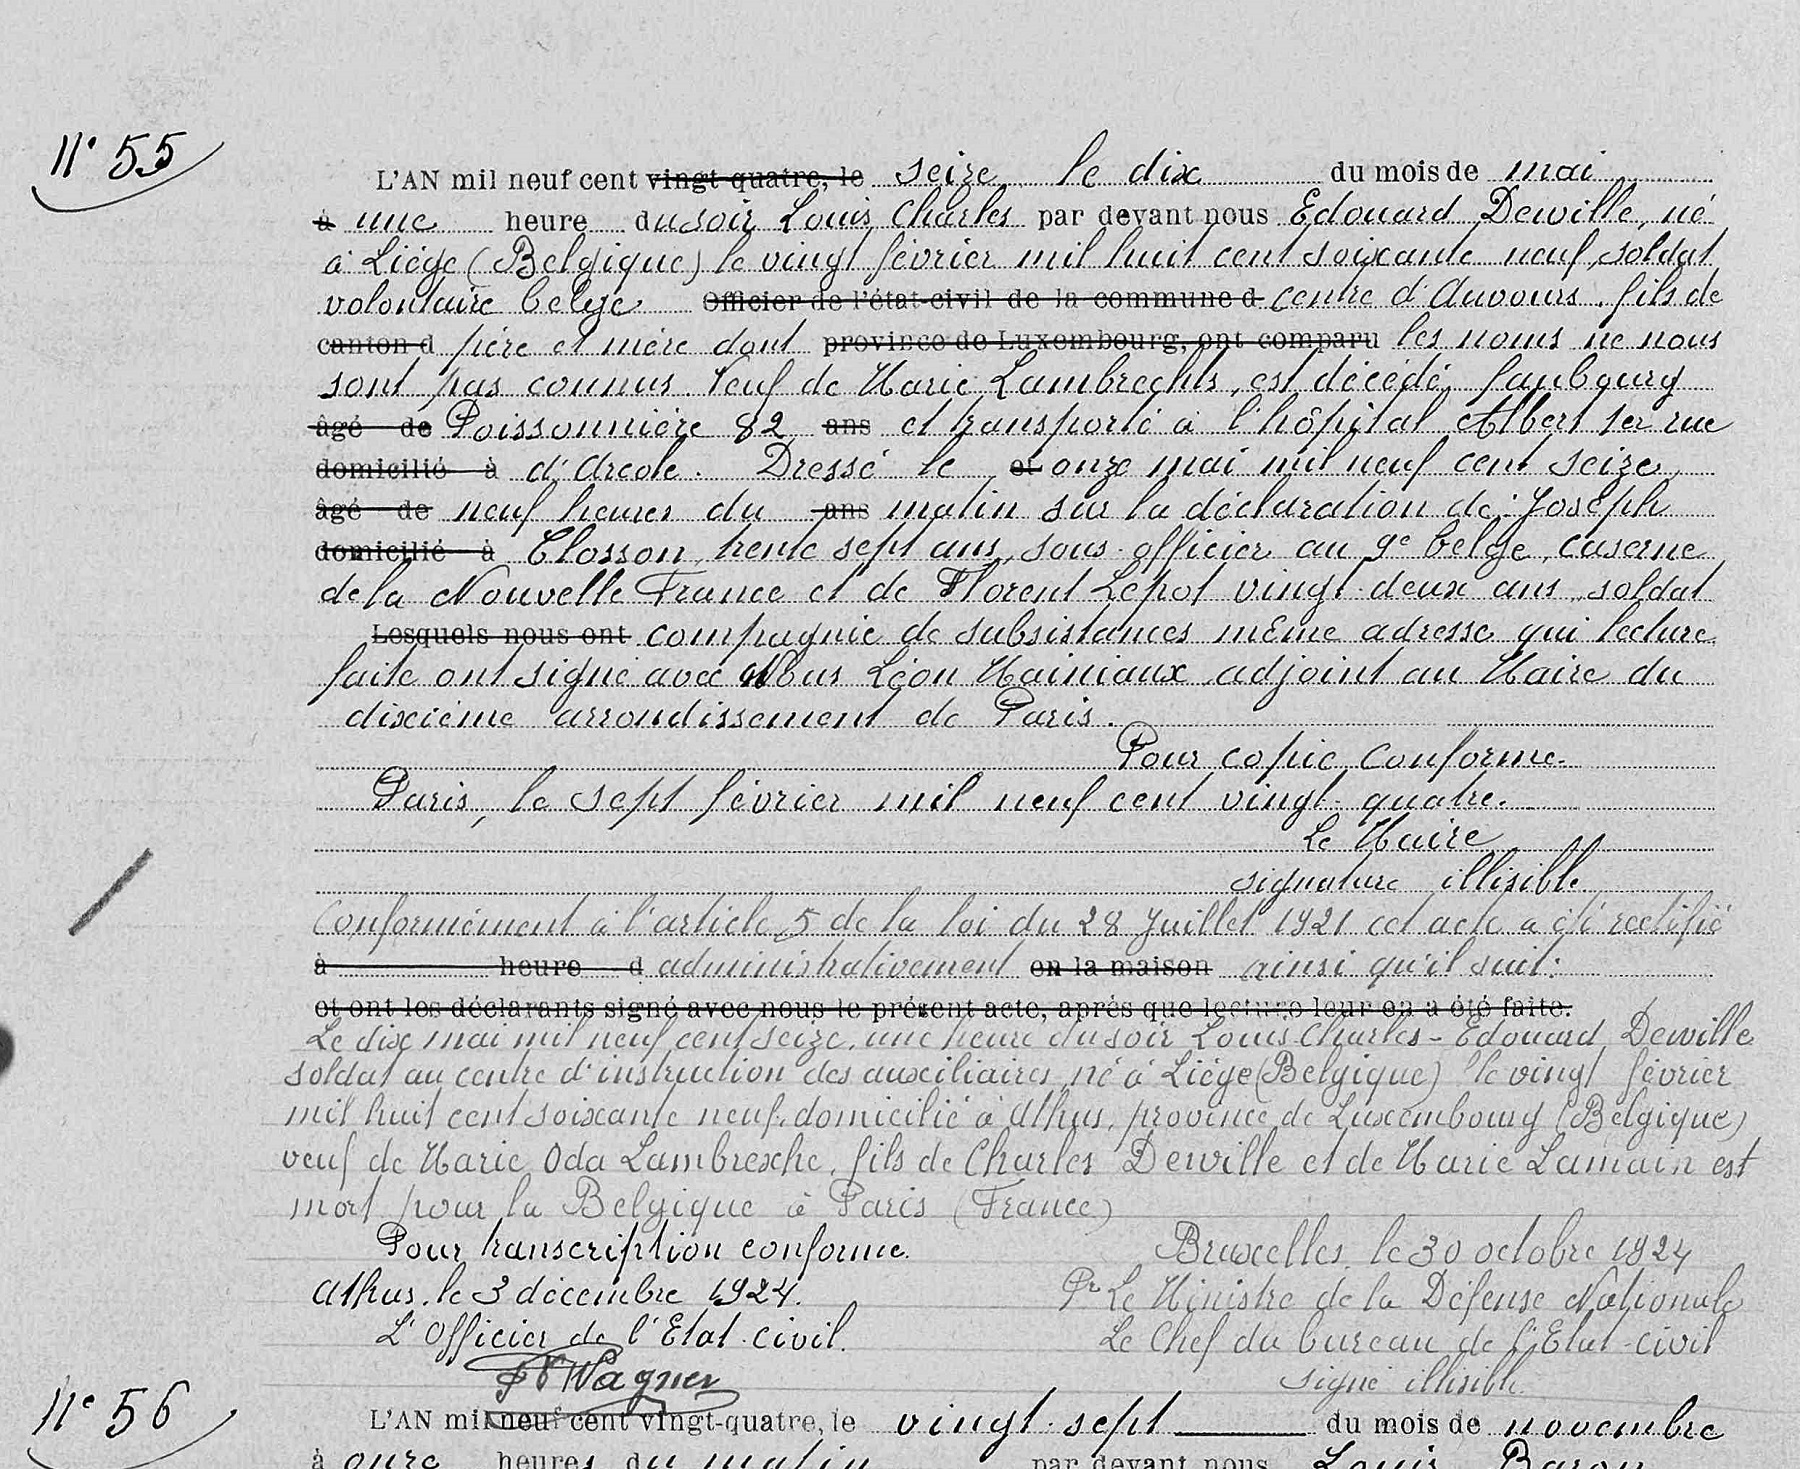 N° 55
L'AN mil neuf cent vingt-quatre, le seize le dix du mois de mai
à une heure du soir Louis Charles par devant nous Edouard Dewille, né
à Liége (Belgique) le vingt février mil huit cent soixante neuf, soldat
volontaire belge Officier de l'état-civil de la commune d centre d'Auvours, fils de
canton d père et mère dont province de Luxembourg, ont comparu les noms ne nous
sont pas connus. Veuf de Marie Lambrechts, est décédé, faubourg
âgé de Poissonnière 82 ans et transporté à l'hôpital Albert 1er rue
domicilié à d'Arcole. Dressé le et onze mai mil neuf cent seize,
âgé de neuf heures du ans matin sur la déclaration de: Joseph
domicilié à Closson, trente sept ans, sous-officier au 9e belge, caserne
de la Nouvelle France et de Florent Lepot vingt-deux ans, soldat
Lesquels nous ont compagnie de subsistances même adresse qui lecture
faite ont signé avec Nous Léon Mainiaux adjoint au Maire du
dixième arrondissement de Paris.
Pour copie conforme.
Paris, le sept février mil neuf cent vingt-quatre.
Le Maire
signature illisible
Conformément à l'article 5 de la loi du 28 Juillet 1921 cet acte a été rectifié
à heure d administrativement en la maison ainsi qu'il suit:
et ont les déclarants signé avec nous le présent acte, après que lecture leur en a été faite.
Le dix mai mil neuf cent seize, une heure du soir Louis-Charles-Edouard Dewille
soldat au centre d'instruction des auxiliaires, né à Liége (Belgique) le vingt février
mil huit cent soixante neuf, domicilié à Athus, province de Luxembourg (Belgique)
veuf de Marie Oda Lambrexhe, fils de Charles Dewille et de Marie Lamain est
mort pour la Belgique à Paris (France)
Pour transcription conforme. Bruxelles, le 30 octobre 1924
Athus, le 3 décembre 1924. Pr Le Ministre de la Défense Nationale
L'Officier de l'Etat-civil. Le Chef du bureau de l'Etat-civil
Wagner signé illisible
N° 56
L'AN mil neuf cent vingt-quatre, le vingt-sept du mois de novembre
à onze heures du matin par devant nous Louis Baron